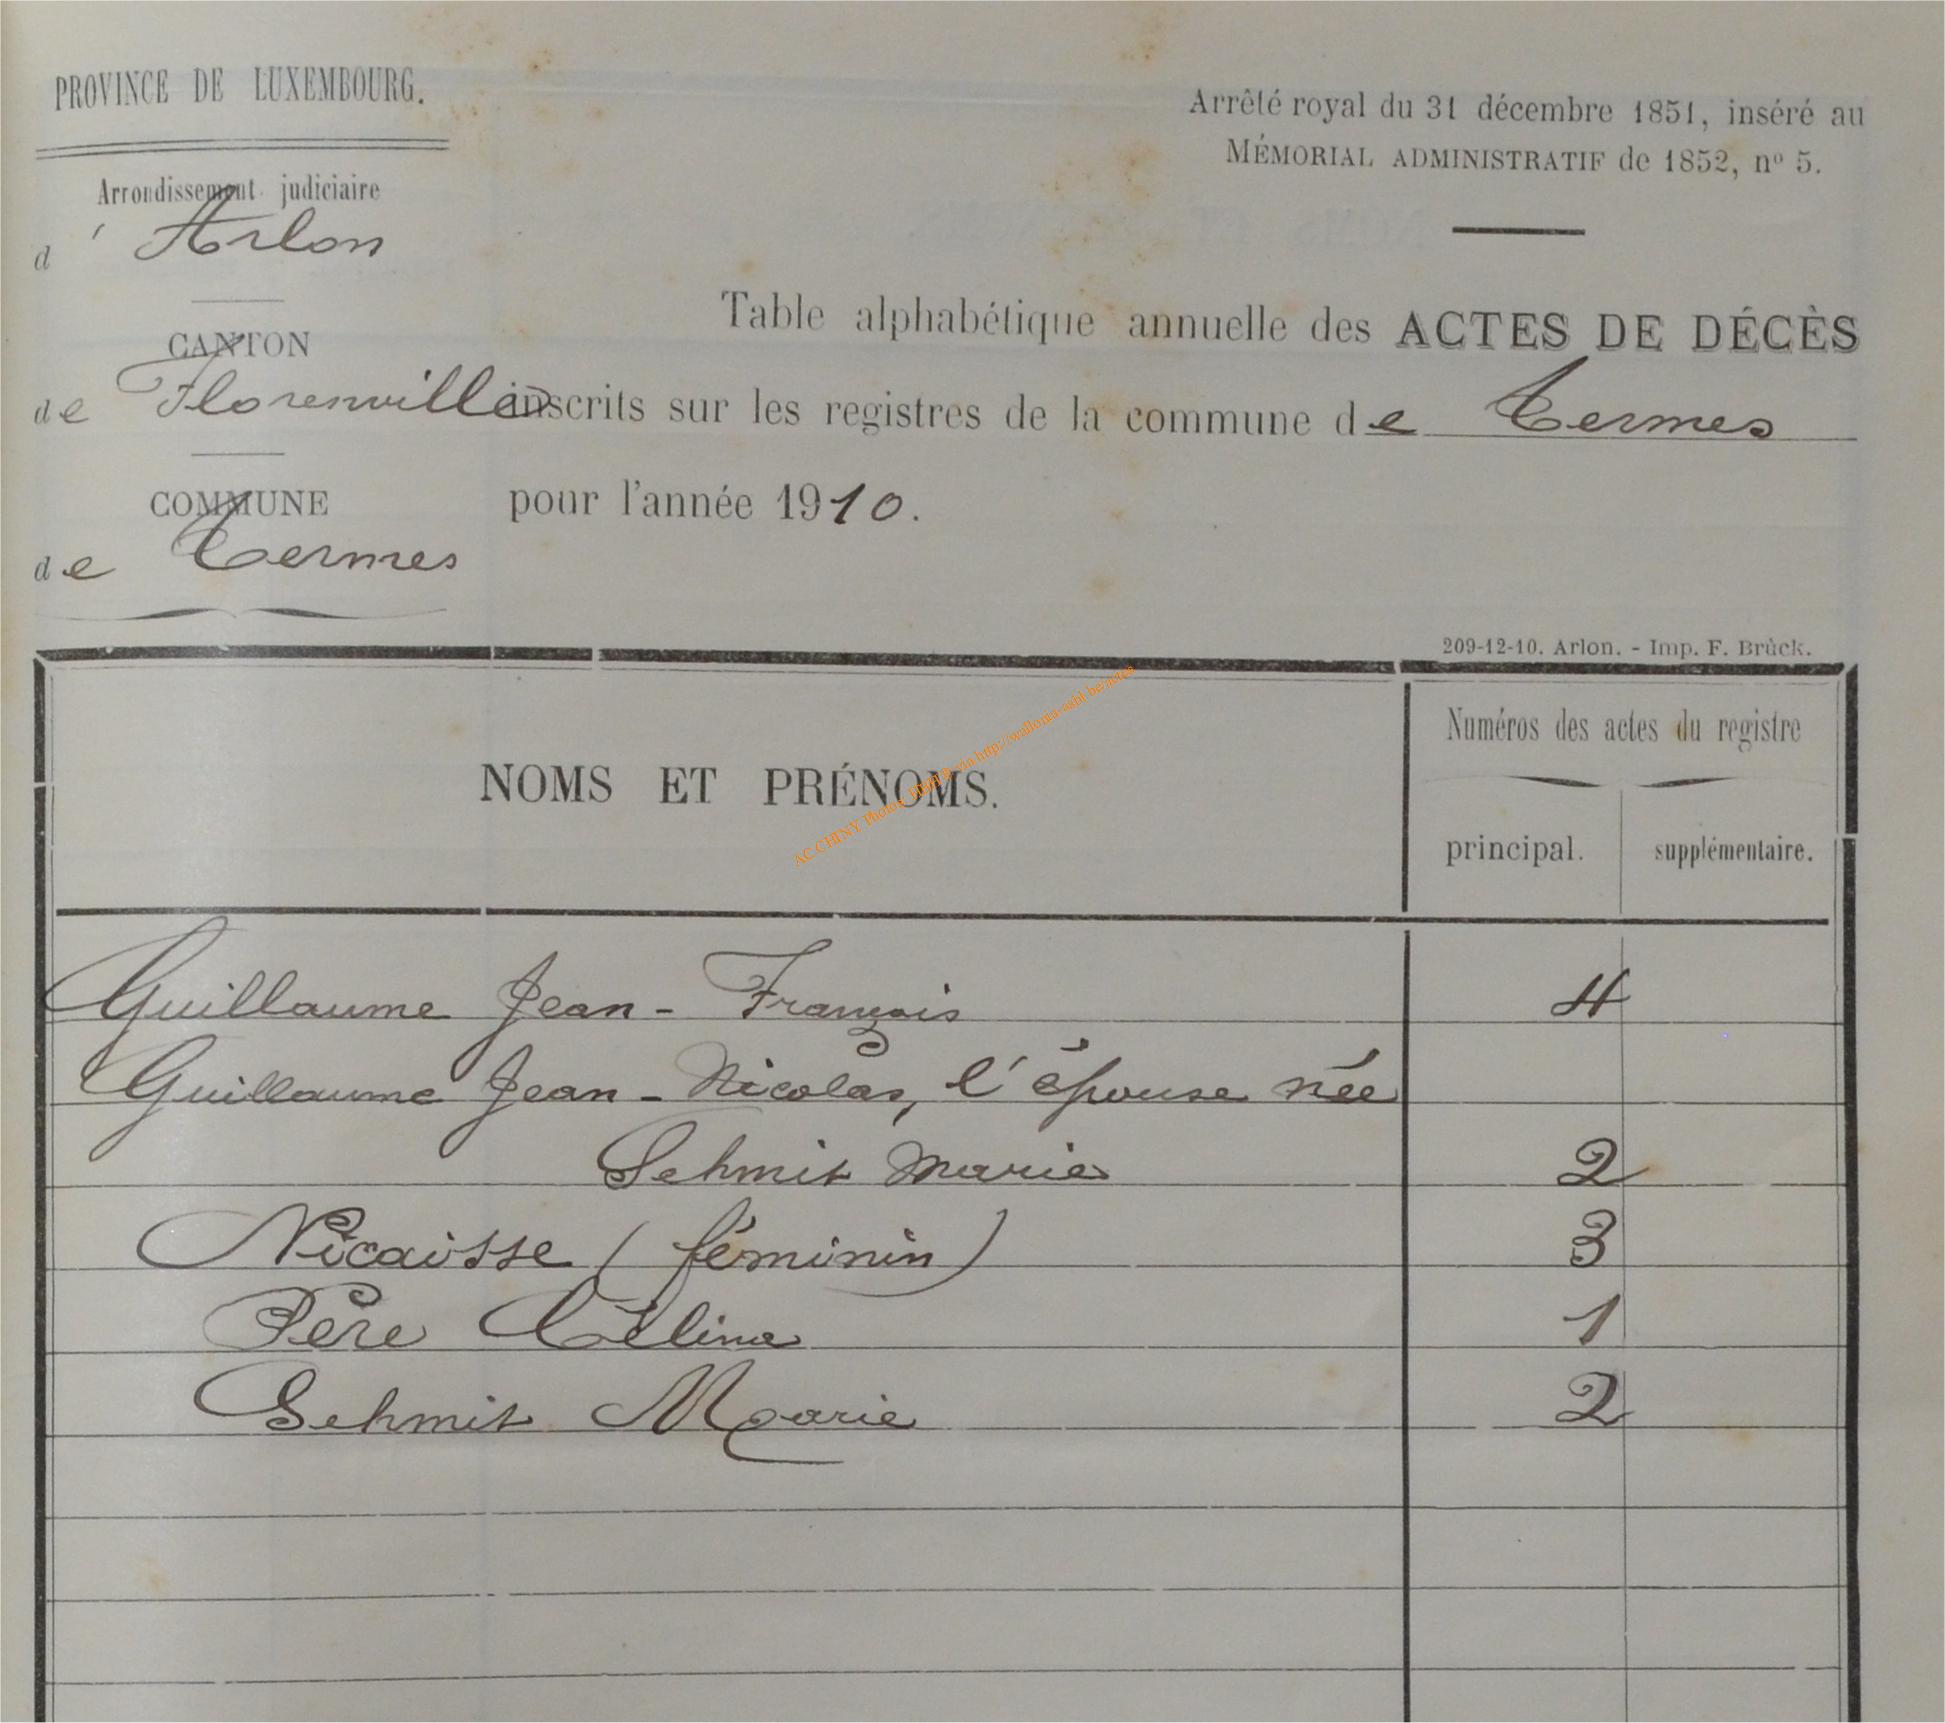 PROVINCE DE LUXEMBOURG.
Arrondissement judiciaire
d'Arlon
CANTON
de Florenville
COMMUNE
de Termes
Arrêté royal du 31 décembre 1851, inséré au
MÉMORIAL ADMINISTRATIF de 1852, nº 5.
Table alphabétique annuelle des ACTES DE DÉCÈS
inscrits sur les registres de la commune de Termes
pour l'année 1910.
209-12-10. Arlon. - Imp. F. Brück.
NOMS ET PRÉNOMS.
Numéros des actes du registre
principal. supplémentaire.
AC CHINY Photos via http://wallonia-asbl.be/actes
Guillaume Jean-François 4
Guillaume Jean-Nicolas, l'épouse née
Schmit Marie 2
Nicaisse (féminin) 3
Père Célina 1
Schmit Marie 2